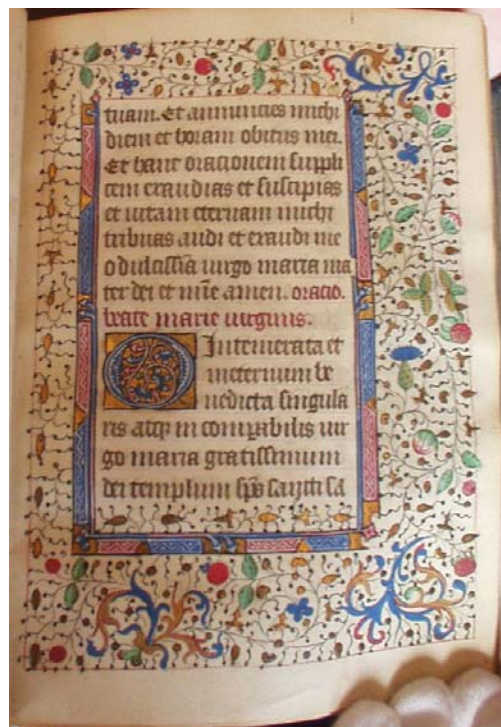 tuam. Et annuncies michi
diem et horam obitus mei.
Et hanc orationem suppli
cem exaudias et suscipias
et uitam eternam michi
tribuas audi et exaudi me
o dulcissīa uirgo maria ma
ter dei et mīe amen. oratio.
beate marie uirginis.
O Intemerata et
ineternum be
nedicta singula
ris atqȝ incomꝑabilis uir
go maria gratissimum
dei templum spūs sancti sa